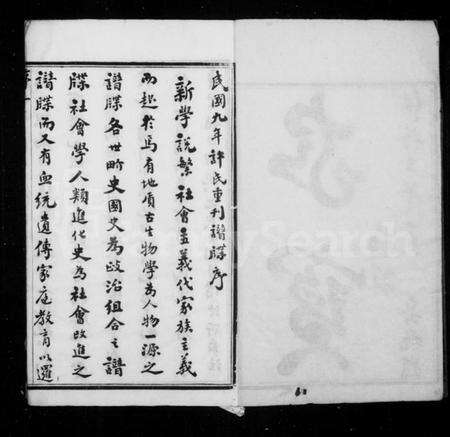 民國九年許氏重刊譜牒序
新學說繁社會主義代家族主義
而起於焉有地質古生物學為人物一源之
譜牒各世畍史國史為政治組合之譜
牒社會學人類進化史為社會改進之
譜牒而又有血統遺傳家庭教育以邏
MyFamilySearch